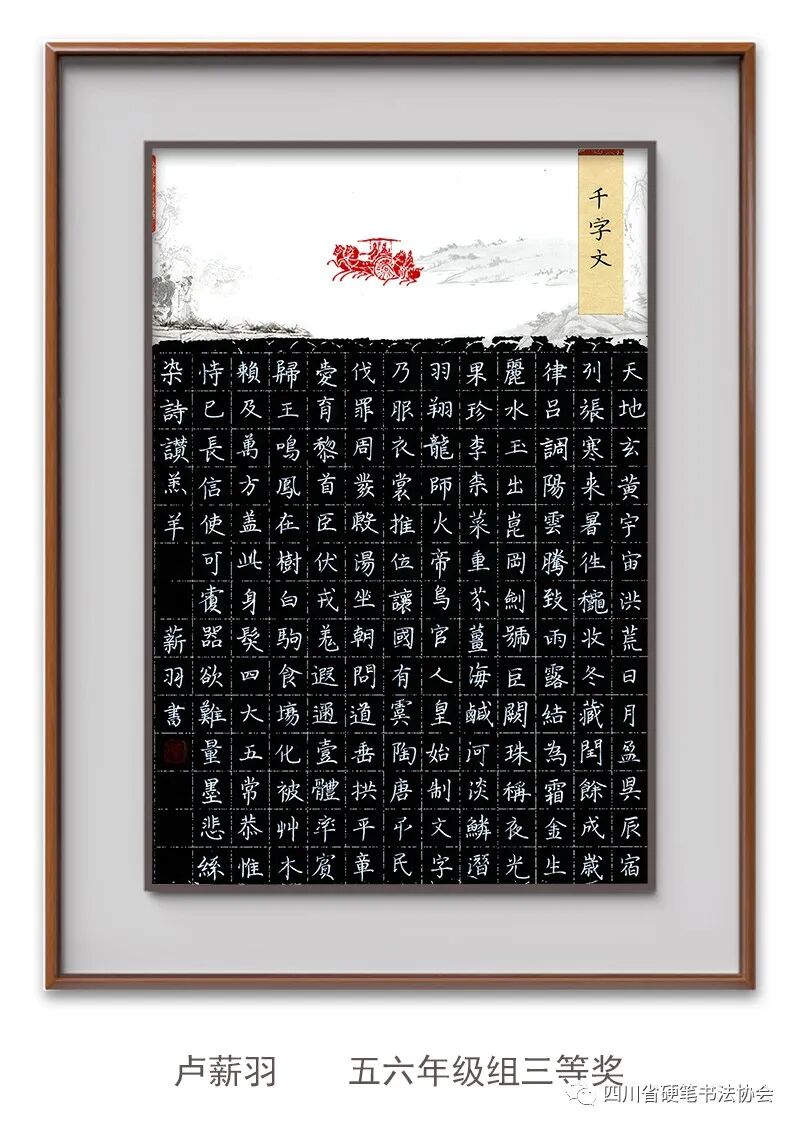 千字文
天地玄黃宇宙洪荒日月盈昃辰宿
列張寒来暑往穐收冬藏閏餘成歲
律呂調陽雲騰致雨露結為霜金生
麗水玉出崑岡劍號巨闕珠稱夜光
果珍李柰菜重芥薑海鹹河淡鱗潛
羽翔龍師火帝鳥官人皇始制文字
乃服衣裳推位讓國有虞陶唐弔民
伐罪周發殷湯坐朝問道垂拱平章
愛育黎首臣伏戎羌遐邇壹體率賓
歸王鳴鳳在樹白駒食場化被艸木
賴及萬方蓋此身髮四大五常恭惟
恃己長信使可覆器欲難量墨悲絲
染詩讚羔羊 薪羽書
卢薪羽 五六年级组三等奖
四川省硬笔书法协会